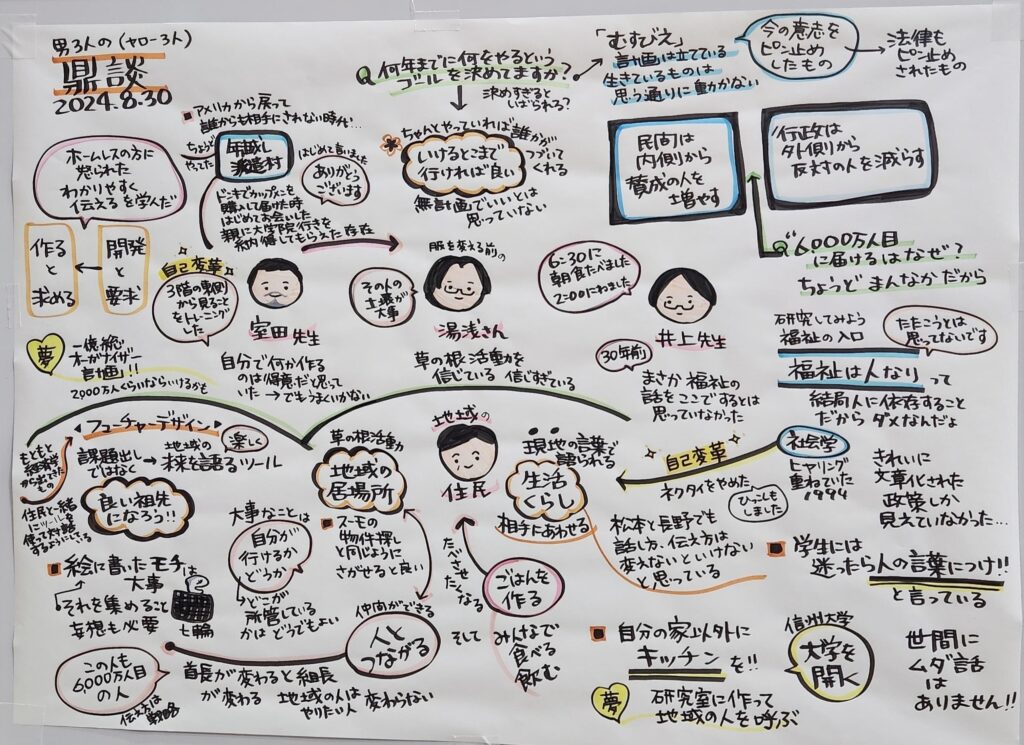 男3人の(ヤロー3人)
鼎談
2024.8.30
Q 何年までに何をやるという
ゴールを決めてますか?
決めすぎると
いざられる?
「むすびえ」
計画は立てている
生きているものは
思う通りに動かない
今の意志を
ピン止め
したもの
法律も
ピン止め
されたもの
アメリカから戻って
誰からも相手にされない時代…
ちょうど
やってた
年越し
派遣村
はじめて言いました
ありがとう
ございます
ドンキでカップ麺を
購入して届けた時
はじめてお会いした
親に大学院行きを
納得してもらえた存在
ホームレスの方に
怒られた
わかりやすく
伝えるを学んだ
作る
と
求める
開発
と
要求
ちゃんとやっていれば誰かが
つづいて
くれる
いけるとこまで
行ければ良い
無計画でいいとは
思っていない
民間は
内側から
賛成の人を
増やす
行政は
外側から
反対の人を減らす
Q 6,000万人目
に届けるはなぜ?
ちょうどまんなかだから
自己変革
3階の東側
から見ること
をトレーニング
した
室田先生
自分で何か作る
のは得意だと思って
いた→でもうまくいかない
その人の
土壌が
大事
服を変える前の
湯浅さん
草の根活動を
信じている 信じすぎている
6:30に
朝食たべました
2:00にねました
井上先生
30年前
まさか福祉の
話をここでするとは
思っていなかった
研究してみよう
福祉の入口
たたこうとは
思ってないです
福祉は人なり って
結局人に依存すること
だからダメなんだよ
夢
一億総
オーガナイザー
計画!!
2,000万人くらいならいけるかも
フューチャーデザイン
もともと
経済学
から出てきた
もの
課題出し
ではなく
→地域の
未来を語るツール
楽しく
住民と一緒
にツールを
使って対話
するようにしている
良い祖先
になろう!!
草の根活動
地域の
居場所
地域の
住民
現地の言葉で
語られる
生活
くらし
相手にあわせる
自己変革
ネクタイをやめた
ひっこしも
しました
社会学
ヒヤリング
重ねていた
1994
きれいに
文章化された
政策しか
見えていなかった…
松本と長野でも
話し方、伝え方は
変えないといけない
と思っている
学生には
迷ったら人の言葉につけ!!
と言っている
絵に書いたモチは
大事
それを集めること
妄想も必要
七輪
大事なことは
自分が
行けるか
どうか
どこが
所管している
かはどうでもよい
スーモの
物件探し
と同じように
さがせると良い
仲間ができる
人と
つながる
たべさせたくなる
ごはんを
作る
そして
みんなで
食べる
飲む
この人も
6,000万人目
の人
伝え方は
戦略
首長が変わると組長
が変わる
地域の人は
やりたい人
変わらない
自分の家以外に
キッチンを!!
夢
研究室に作って
地域の人を呼ぶ
信州大学
大学を
開く
世間に
ムダ話
は
ありません!!